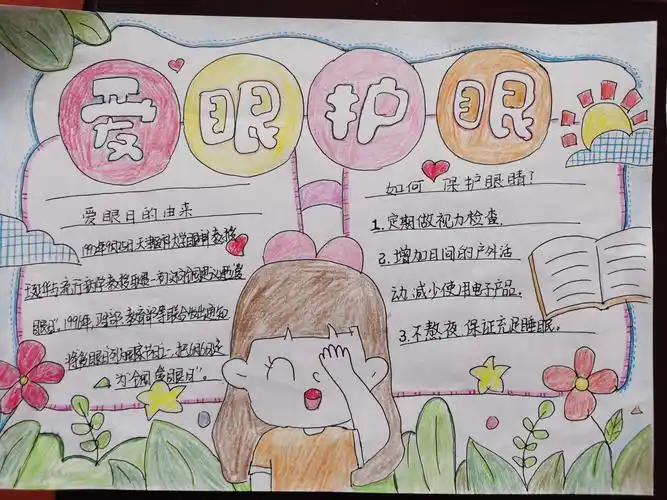 爱眼护眼
爱眼日的由来
1992年9月25日天津医科大学眼科教授
眼日"。1996年,卫生部、教育部等联合发出通知
将爱眼日列为国家节日之一,
为"全国爱眼日"。
如何保护眼睛?
1.定期做视力检查.
2.增加日间的户外活
动.减少使用电子产品.
3.不熬夜.保证充足睡眠。